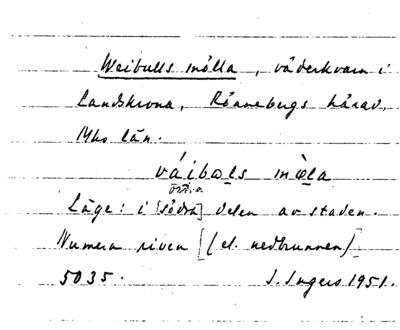 Weibulls mölla, väderkvarn i
Landskrona, Rönnebergs härad,
Mhs län.
váibɷls mɷ̀la
östra
Läge: i [södra] delen av staden.
Numera riven [(el. nedbrunnen)]
5035. I. Ingers 1951.